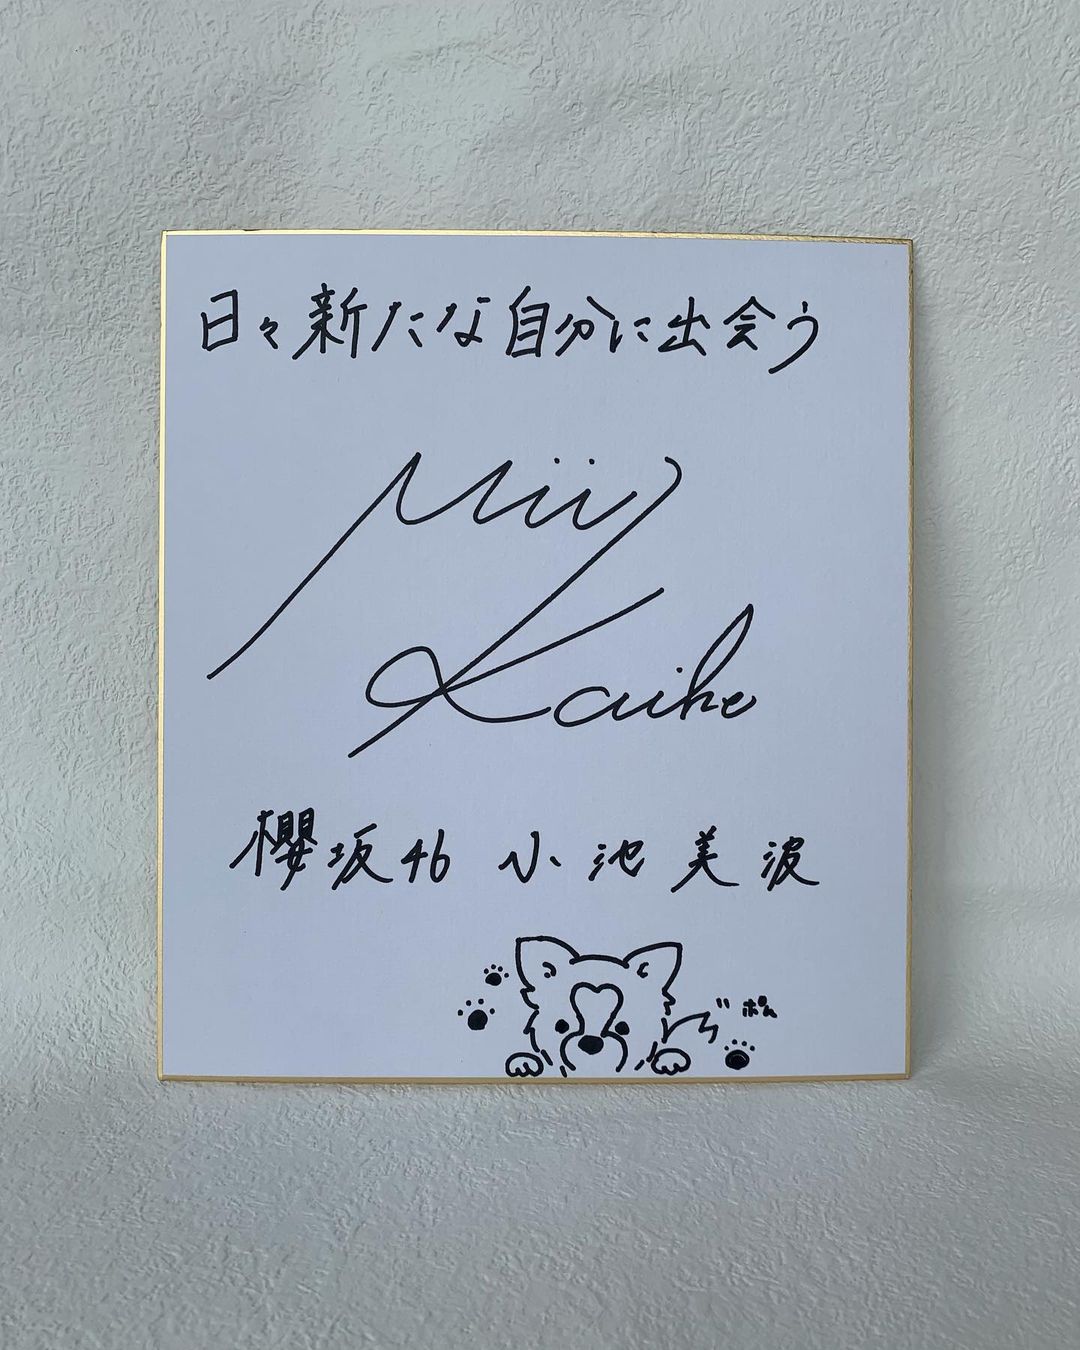 日々新たな自分に出会う
Mii
Koike
櫻坂46 小池美波
ポム